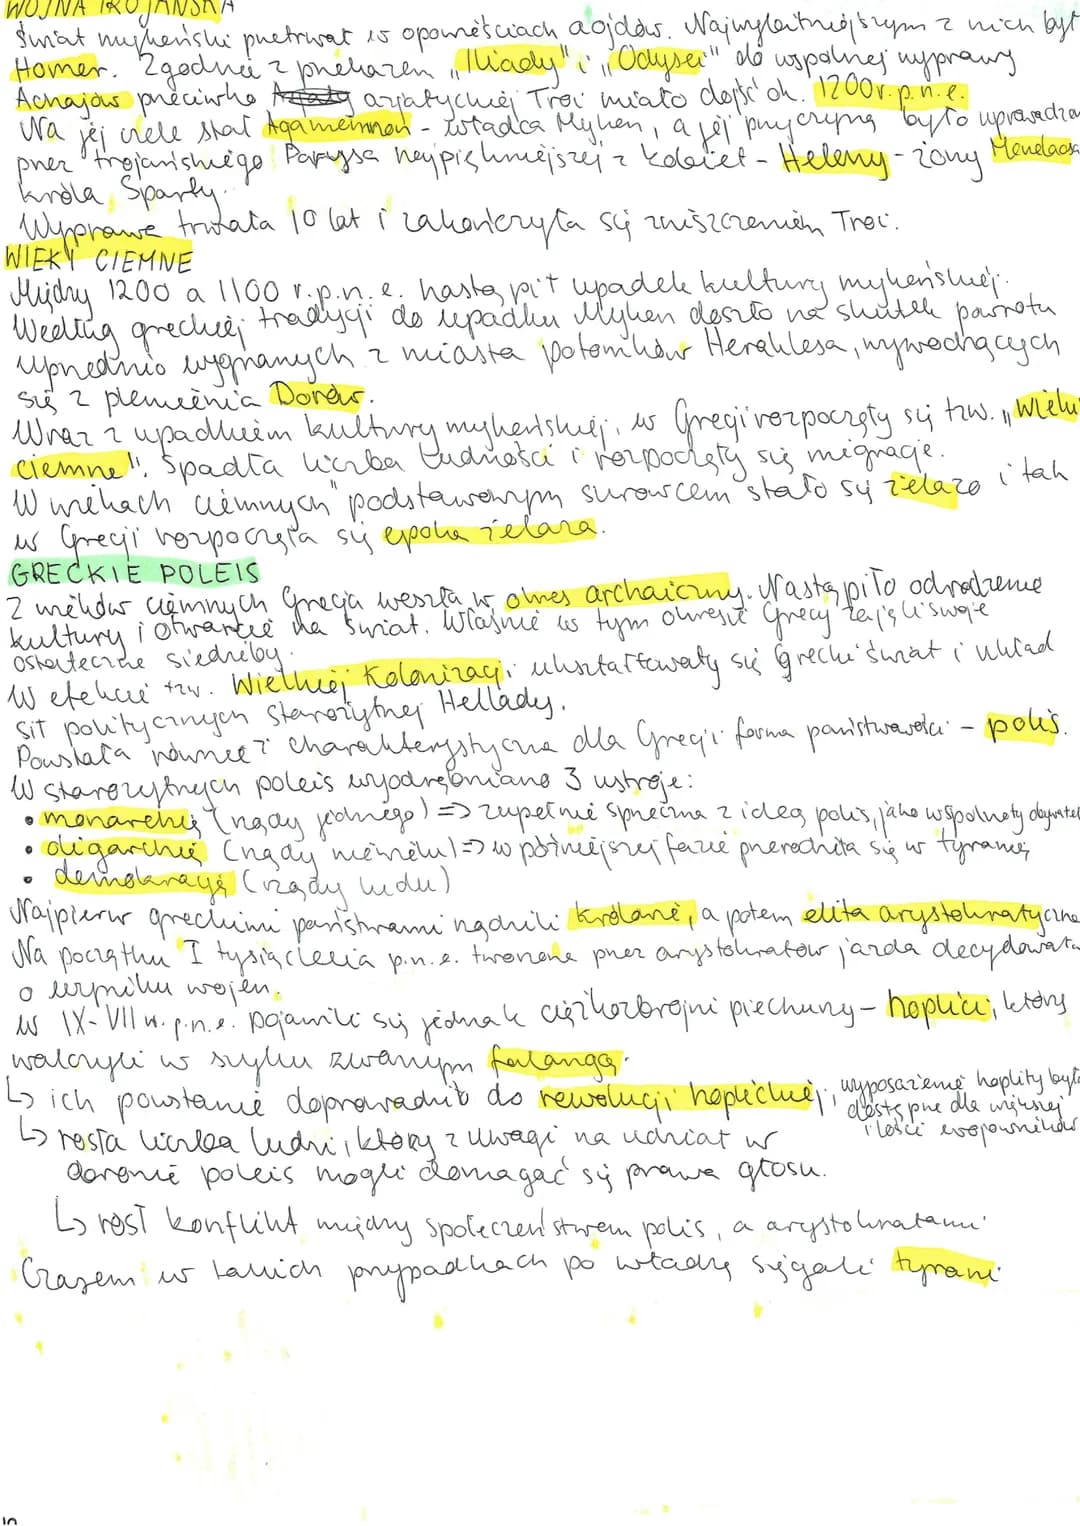 WOJNA TROJAŃSKA
Świat mykeński przetrwał w opowieściach aojdów. Najwybitniejszym z nich był
Homer. Zgodnie z przekazem „Iliady" i „Odysei" do wspólnej wyprawy
Achajów przeciwko azjatyckiej Troi miało dojść ok. 1200r.p.n.e.
Na jej czele stał Agamemnon - władca Myken, a jej przyczyną było uprowadzen
przez trojańskiego Parysa najpiękniejszej z kobiet - Heleny - żony Menelaosa
króla Sparty.
Wyprawa trwała 10 lat i zakończyła się zniszczeniem Troi.
WIEKY CIEMNE
Między 1200 a 1100 r.p.n.e. nastąpił upadek kultury mykeńskiej.
Według greckiej tradycji do upadku Myken doszło na skutek powrotu
uprzednio wygnanych z miasta potomków Heraklesa, wywodzących
się z plemienia Dorów.
Wraz z upadkiem kultury mykeńskiej, w Grecji rozpoczęły się tzw. „wieki
ciemne". Spadła liczba ludności i rozpoczęły się migracje.
W wiekach ciemnych" podstawowym surowcem stało się żelazo i tak
w Grecji rozpoczęła się epoka żelaza.
GRECKIE POLEIS
Z wieków ciemnych Grecja weszła w okres archaiczny. Nastąpiło odrodzenie
kultury i otwarcie na świat. Właśnie w tym okresie Grecy zajęli swoje
ostateczne siedziby.
W efekcie tzw. Wielkiej Kolonizacji ukształtowały się grecki świat i układ
sił politycznych starożytnej Hellady.
Powstała również charakterystyczna dla Grecji forma państwowości - polis.
W starożytnych poleis wyodrębniano 3 ustroje:
• monarchię (rządy jednego) => zupełnie sprzeczna z ideą polis, jako wspólnoty obywatel
• oligarchię (rządy niewielu) => w późniejszej fazie przerodziła się w tyranię
• demokrację (rządy ludu)
Najpierw greckimi państwami rządzili królowie, a potem elita arystokratyczna
Na początku I tysiąclecia p.n.e. tworzona przez arystokratów jazda decydowała
o wyniku wojen.
w IX-VII w. p.n.e. pojawili się jednak ciężkozbrojni piechurzy - hoplici, którzy
walczyli w szyku zwanym falangą.
↳ ich powstanie doprowadziło do rewolucji hoplickiej; wyposażenie hoplity było
dostępne dla większej
ilości wojowników
↳ rosła liczba ludzi, którzy z uwagi na udział w
obronie poleis mogli domagać się prawa głosu.
↳ rósł konflikt między społeczeństwem polis, a arystokratami
Czasem w takich przypadkach po władzę sięgali tyrani